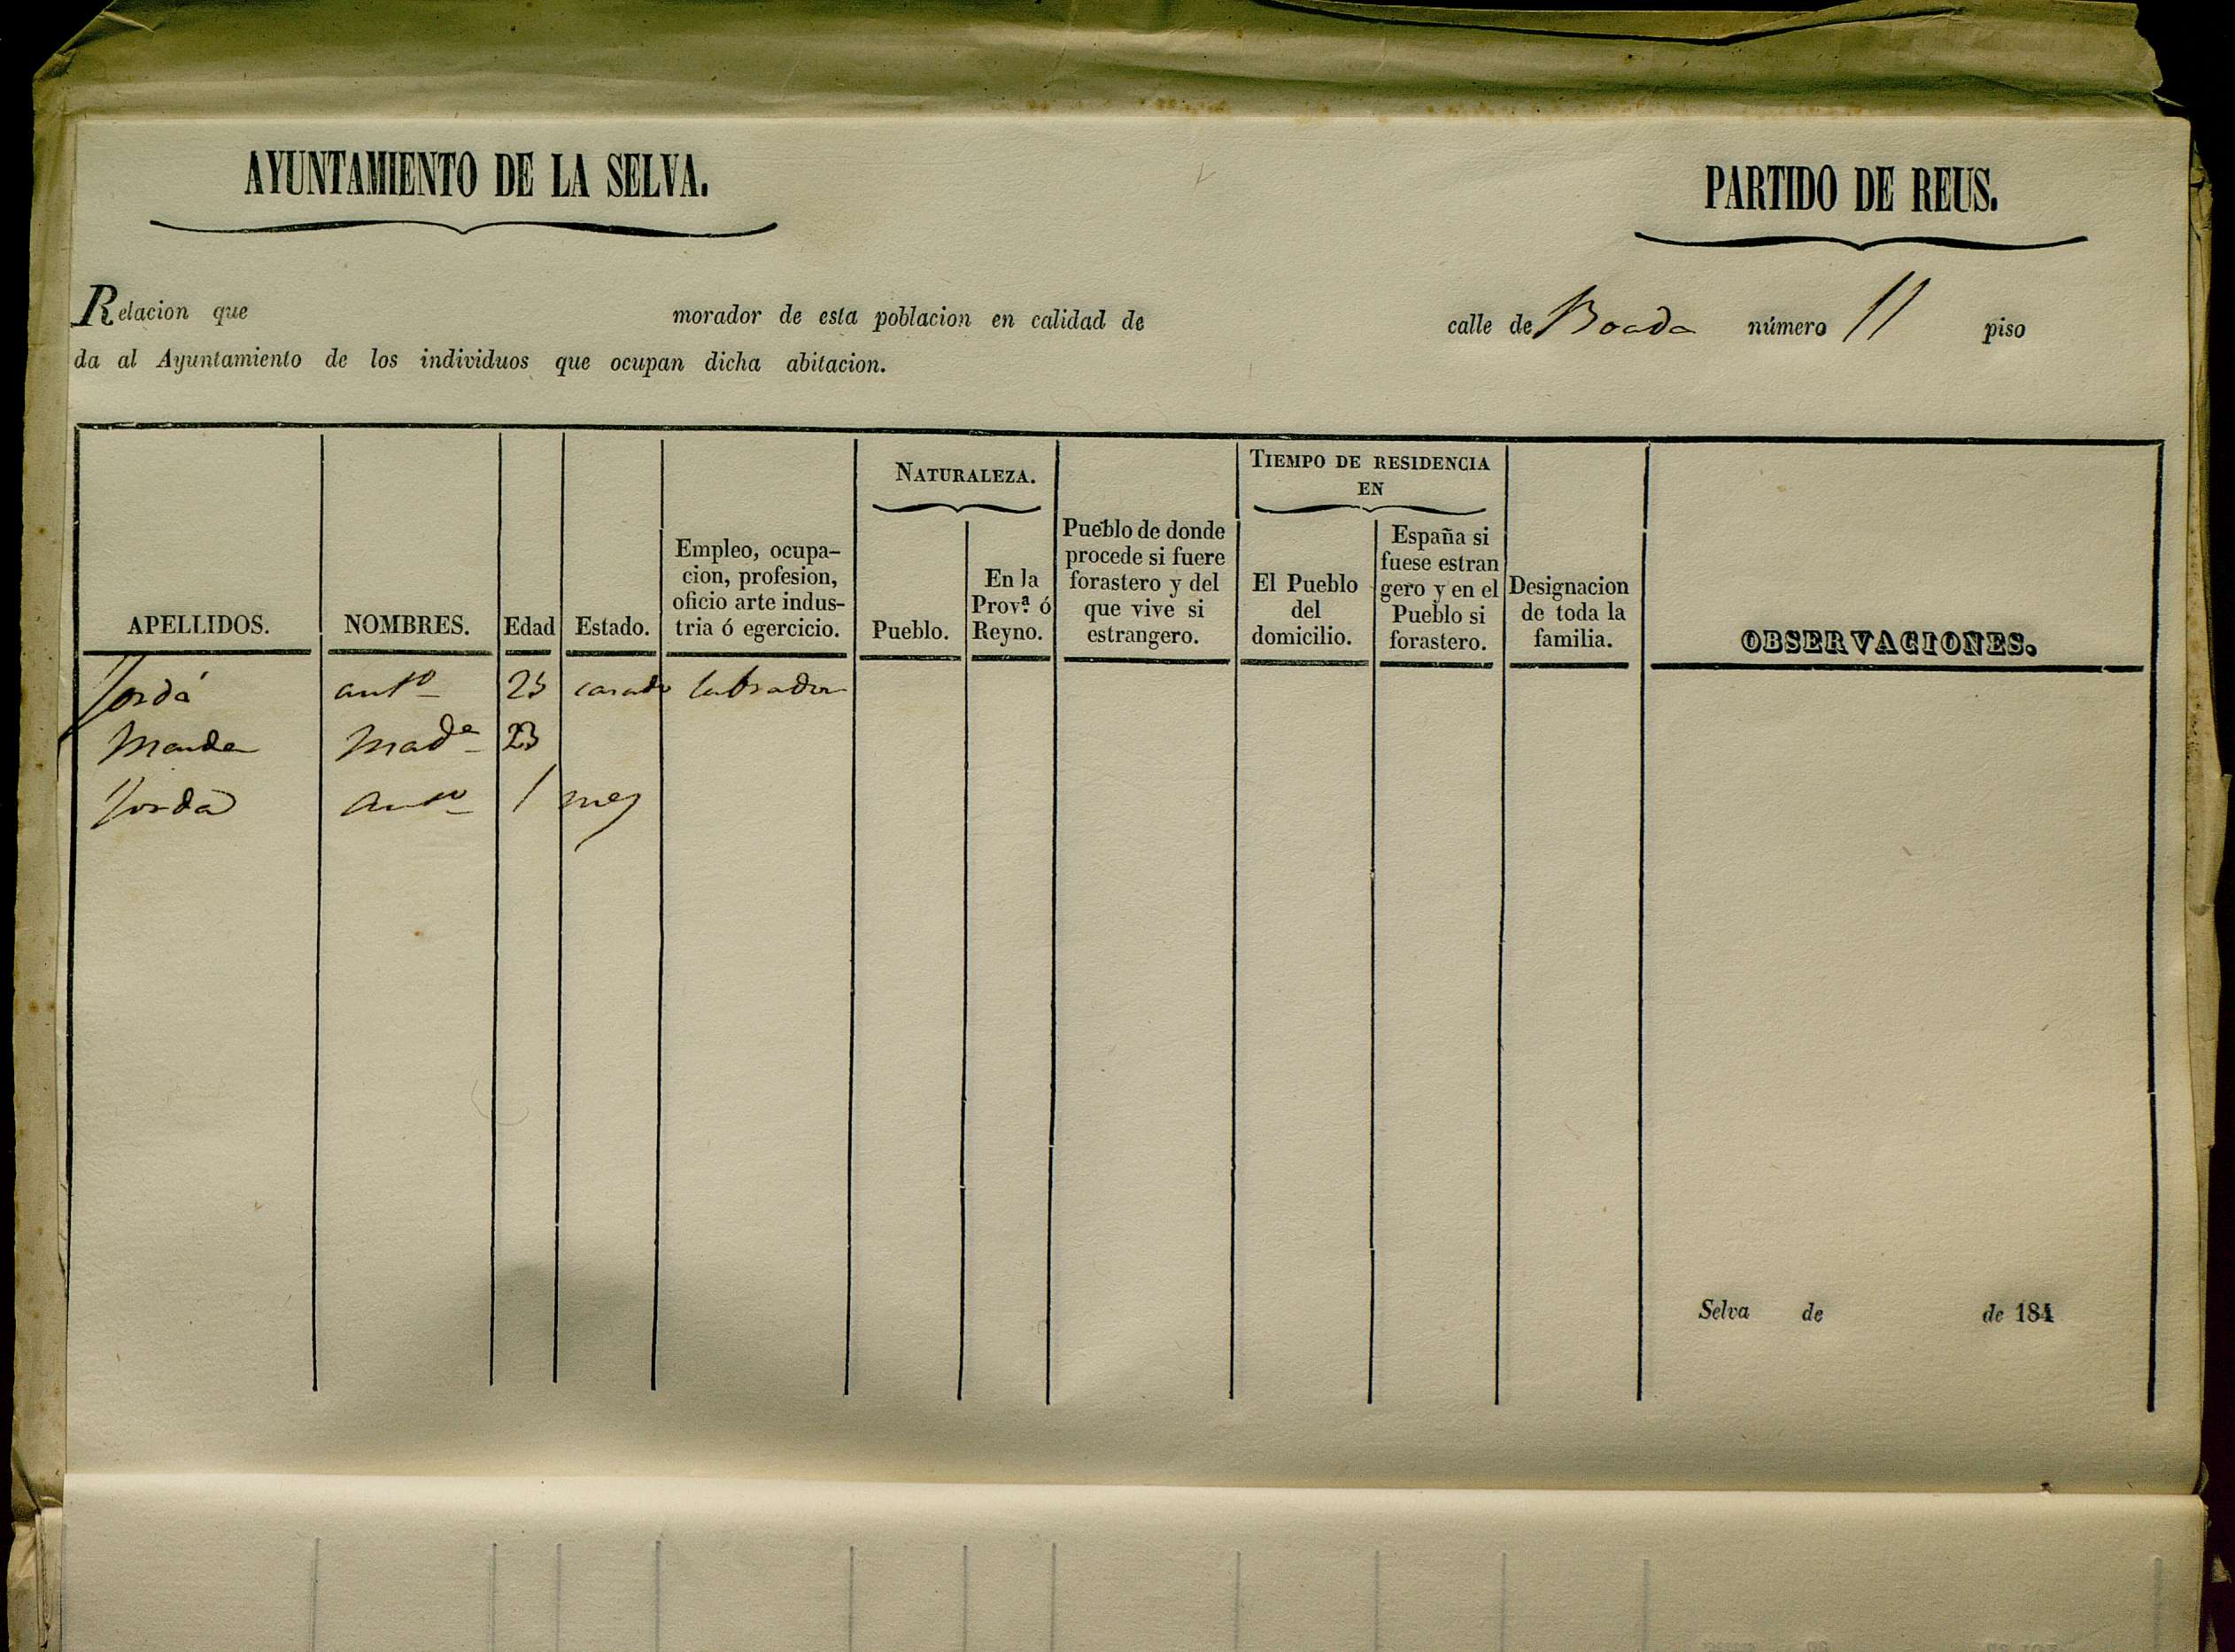 AYUNTAMIENTO DE LA SELVA.
PARTIDO DE REUS.
Relacion que morador de esta poblacion en calidad de calle de Boada número 11 piso
da al Ayuntamiento de los individuos que ocupan dicha abitacion.
APELLIDOS.
NOMBRES.
Edad
Estado.
Empleo, ocupa-
cion, profesion,
oficio arte indus-
tria ó egercicio.
NATURALEZA.
Pueblo.
En la
Prov.ª ó
Reyno.
Pueblo de donde
procede si fuere
forastero y del
que vive si
estrangero.
TIEMPO DE RESIDENCIA
EN
El Pueblo
del
domicilio.
España si
fuese estran
gero y en el
Pueblo si
forastero.
Designacion
de toda la
familia.
OBSERVACIONES.
Jordá antº 25 casado labrador
Madª 23
Jordá Antº 1 mes
Selva de de 184